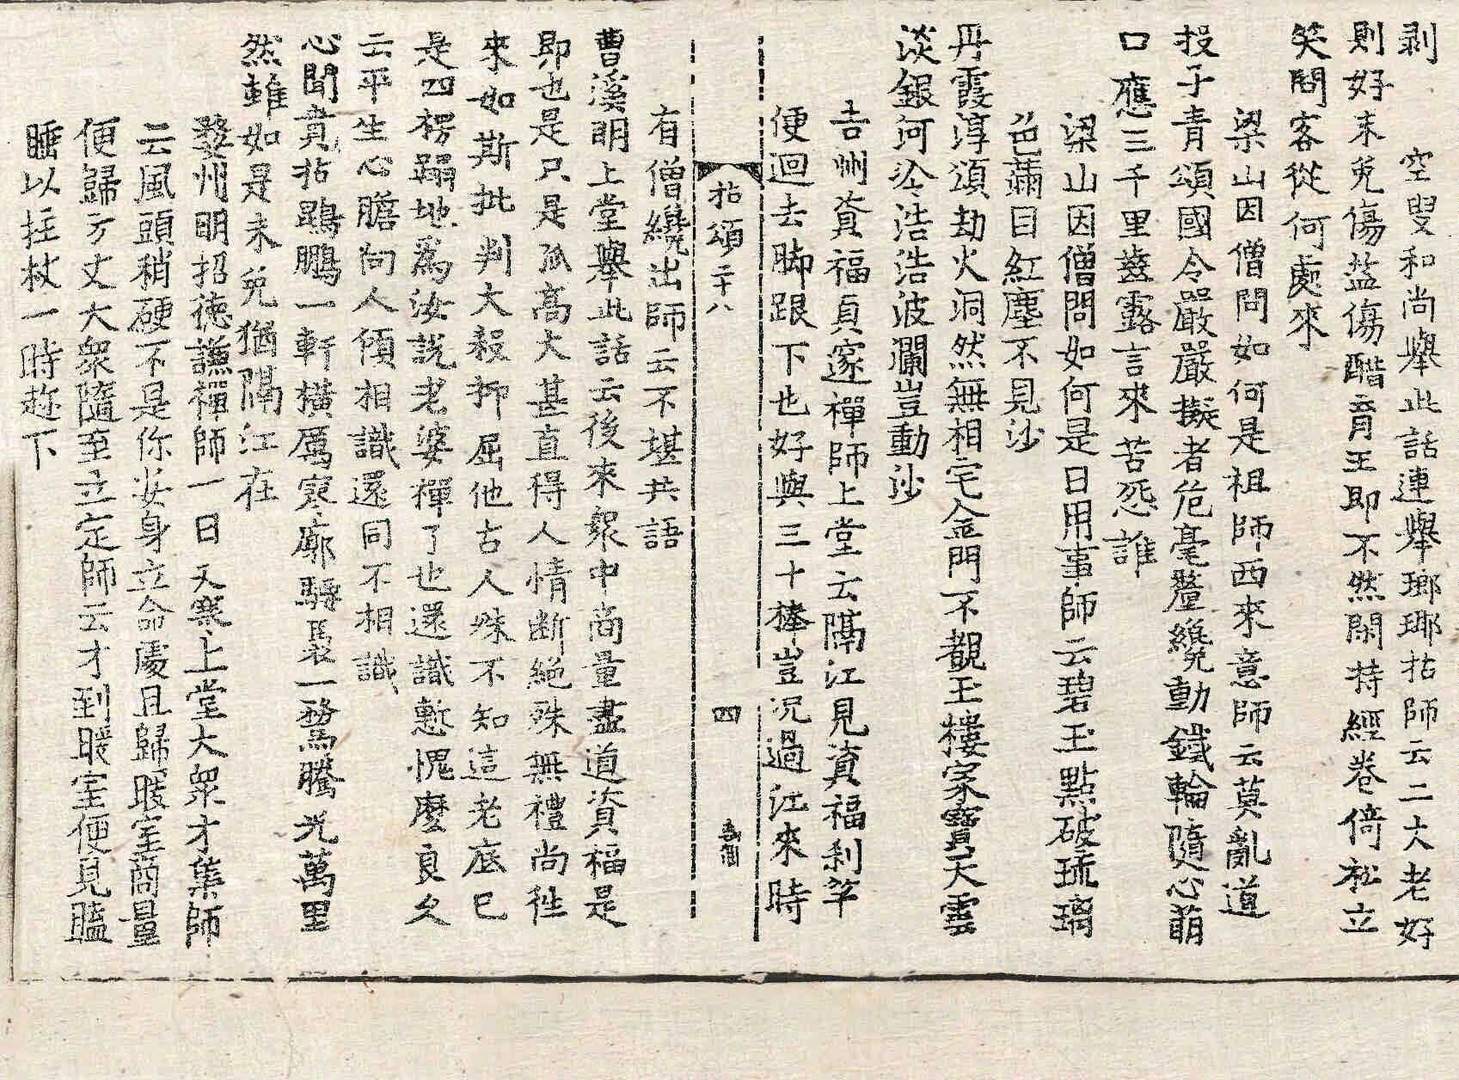 剥　空叟和尚舉此話連舉瑯琊拈師云二大老好
則好未免傷盐傷醋育王即不然閑持經卷倚松立
笑問客從何處來
梁山因僧問如何是祖師西來意師云莫亂道
投子青頌國令嚴嚴擬者危毫釐纔動鐵輪隨心萌
口應三千里齒露言來苦怨誰
梁山因僧問如何是日用事師云碧玉點破琉璃
色薾目紅塵不見沙
丹霞淳頌劫火洞然無相宅金門不覩玉樓家寶天雲
淡銀河冷浩浩波瀾豈動沙
吉州資福貞邃禪師上堂云隔江見資福刹竿
便迴去脚跟下也好與三十棒豈況過江來時
拈頌二十八　四
有僧纔出師云不堪共語
曹溪明上堂舉此話云後來衆中商量盡道資福是
即也是只是孤高大甚直得人情断絕殊無禮尚徃
來如斯批判大殺抑屈他古人殊不知這老底已
是四楞蹋地爲汝說老婆禪了也還識慙愧麽良久
云平生心膽向人傾相識還同不相識
心聞賁拈鵾鵬一軒橫厲寥廓騕褭一騖騰光萬里
然雖如是未免猶隔江在
婺州明招德謙禪師一日天寒上堂大衆才集師
云風頭稍硬不是你安身立命處且歸暖室商量
便歸方丈大衆隨至立定師云才到暖室便見瞌
睡以拄杖一時趂下